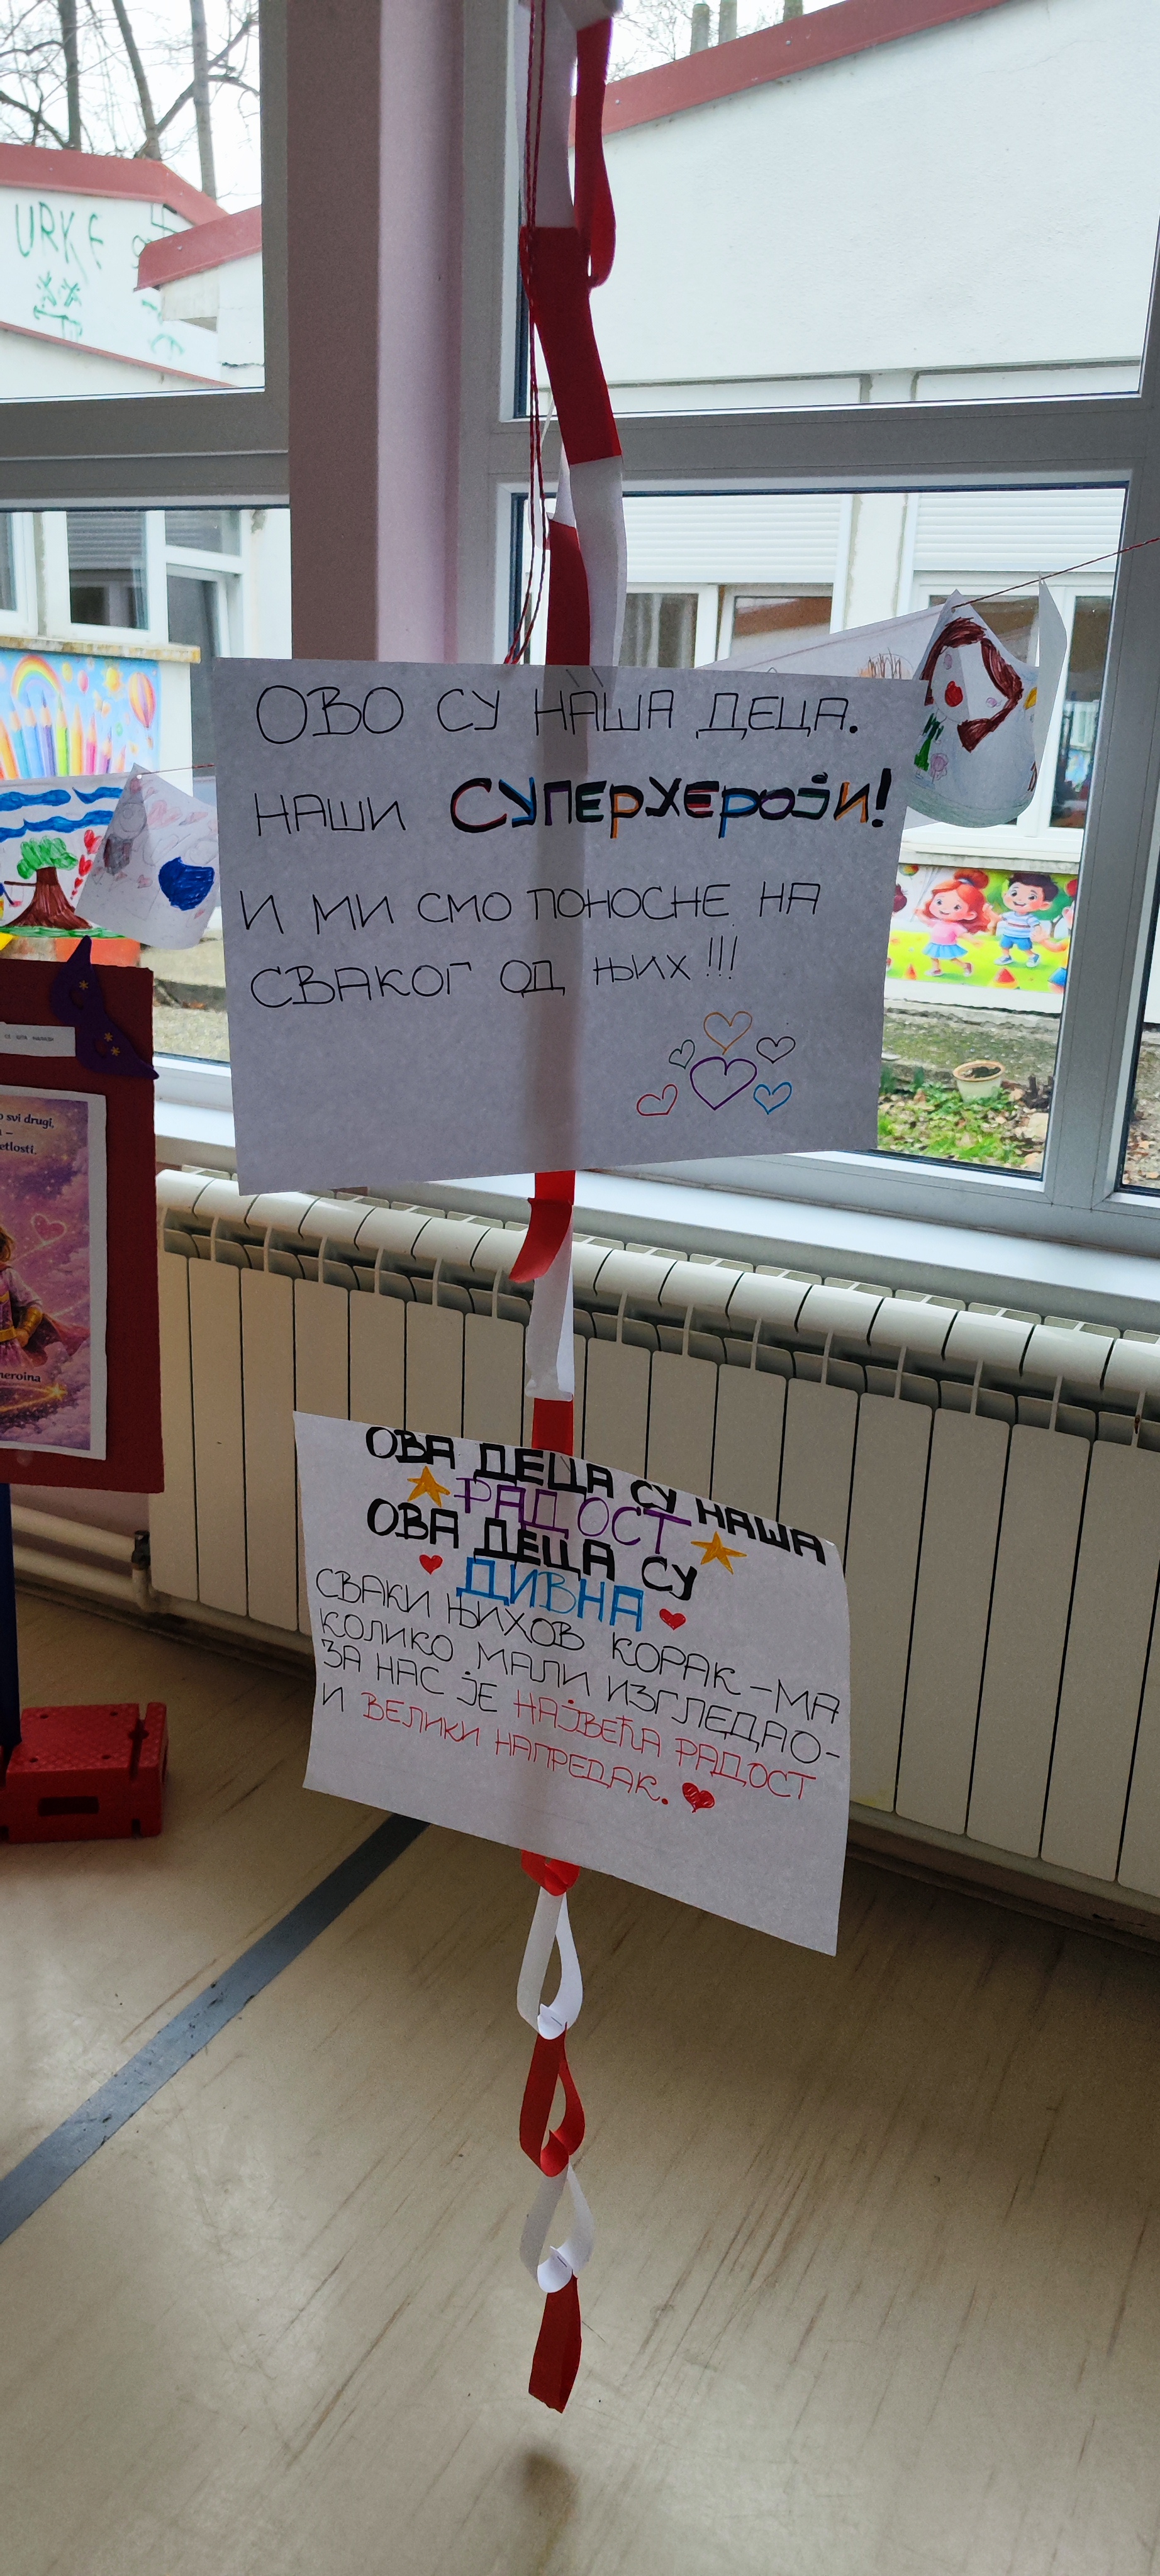 URKE
ОВО СУ НАША ДЕЦА.
НАШИ СУПЕРХЕРОЈИ!
И МИ СМО ПОНОСНЕ НА
СВАКОГ ОД ЊИХ!!!
svi drugi,
–
etlosti.
heroina
ОВА ДЕЦА СУ НАША
РАДОСТ
ОВА ДЕЦА СУ
ДИВНА
СВАКИ ЊИХОВ КОРАК – МА
КОЛИКО МАЛИ ИЗГЛЕДАО –
ЗА НАС ЈЕ НАЈВЕЋА РАДОСТ
И ВЕЛИКИ НАПРЕДАК.